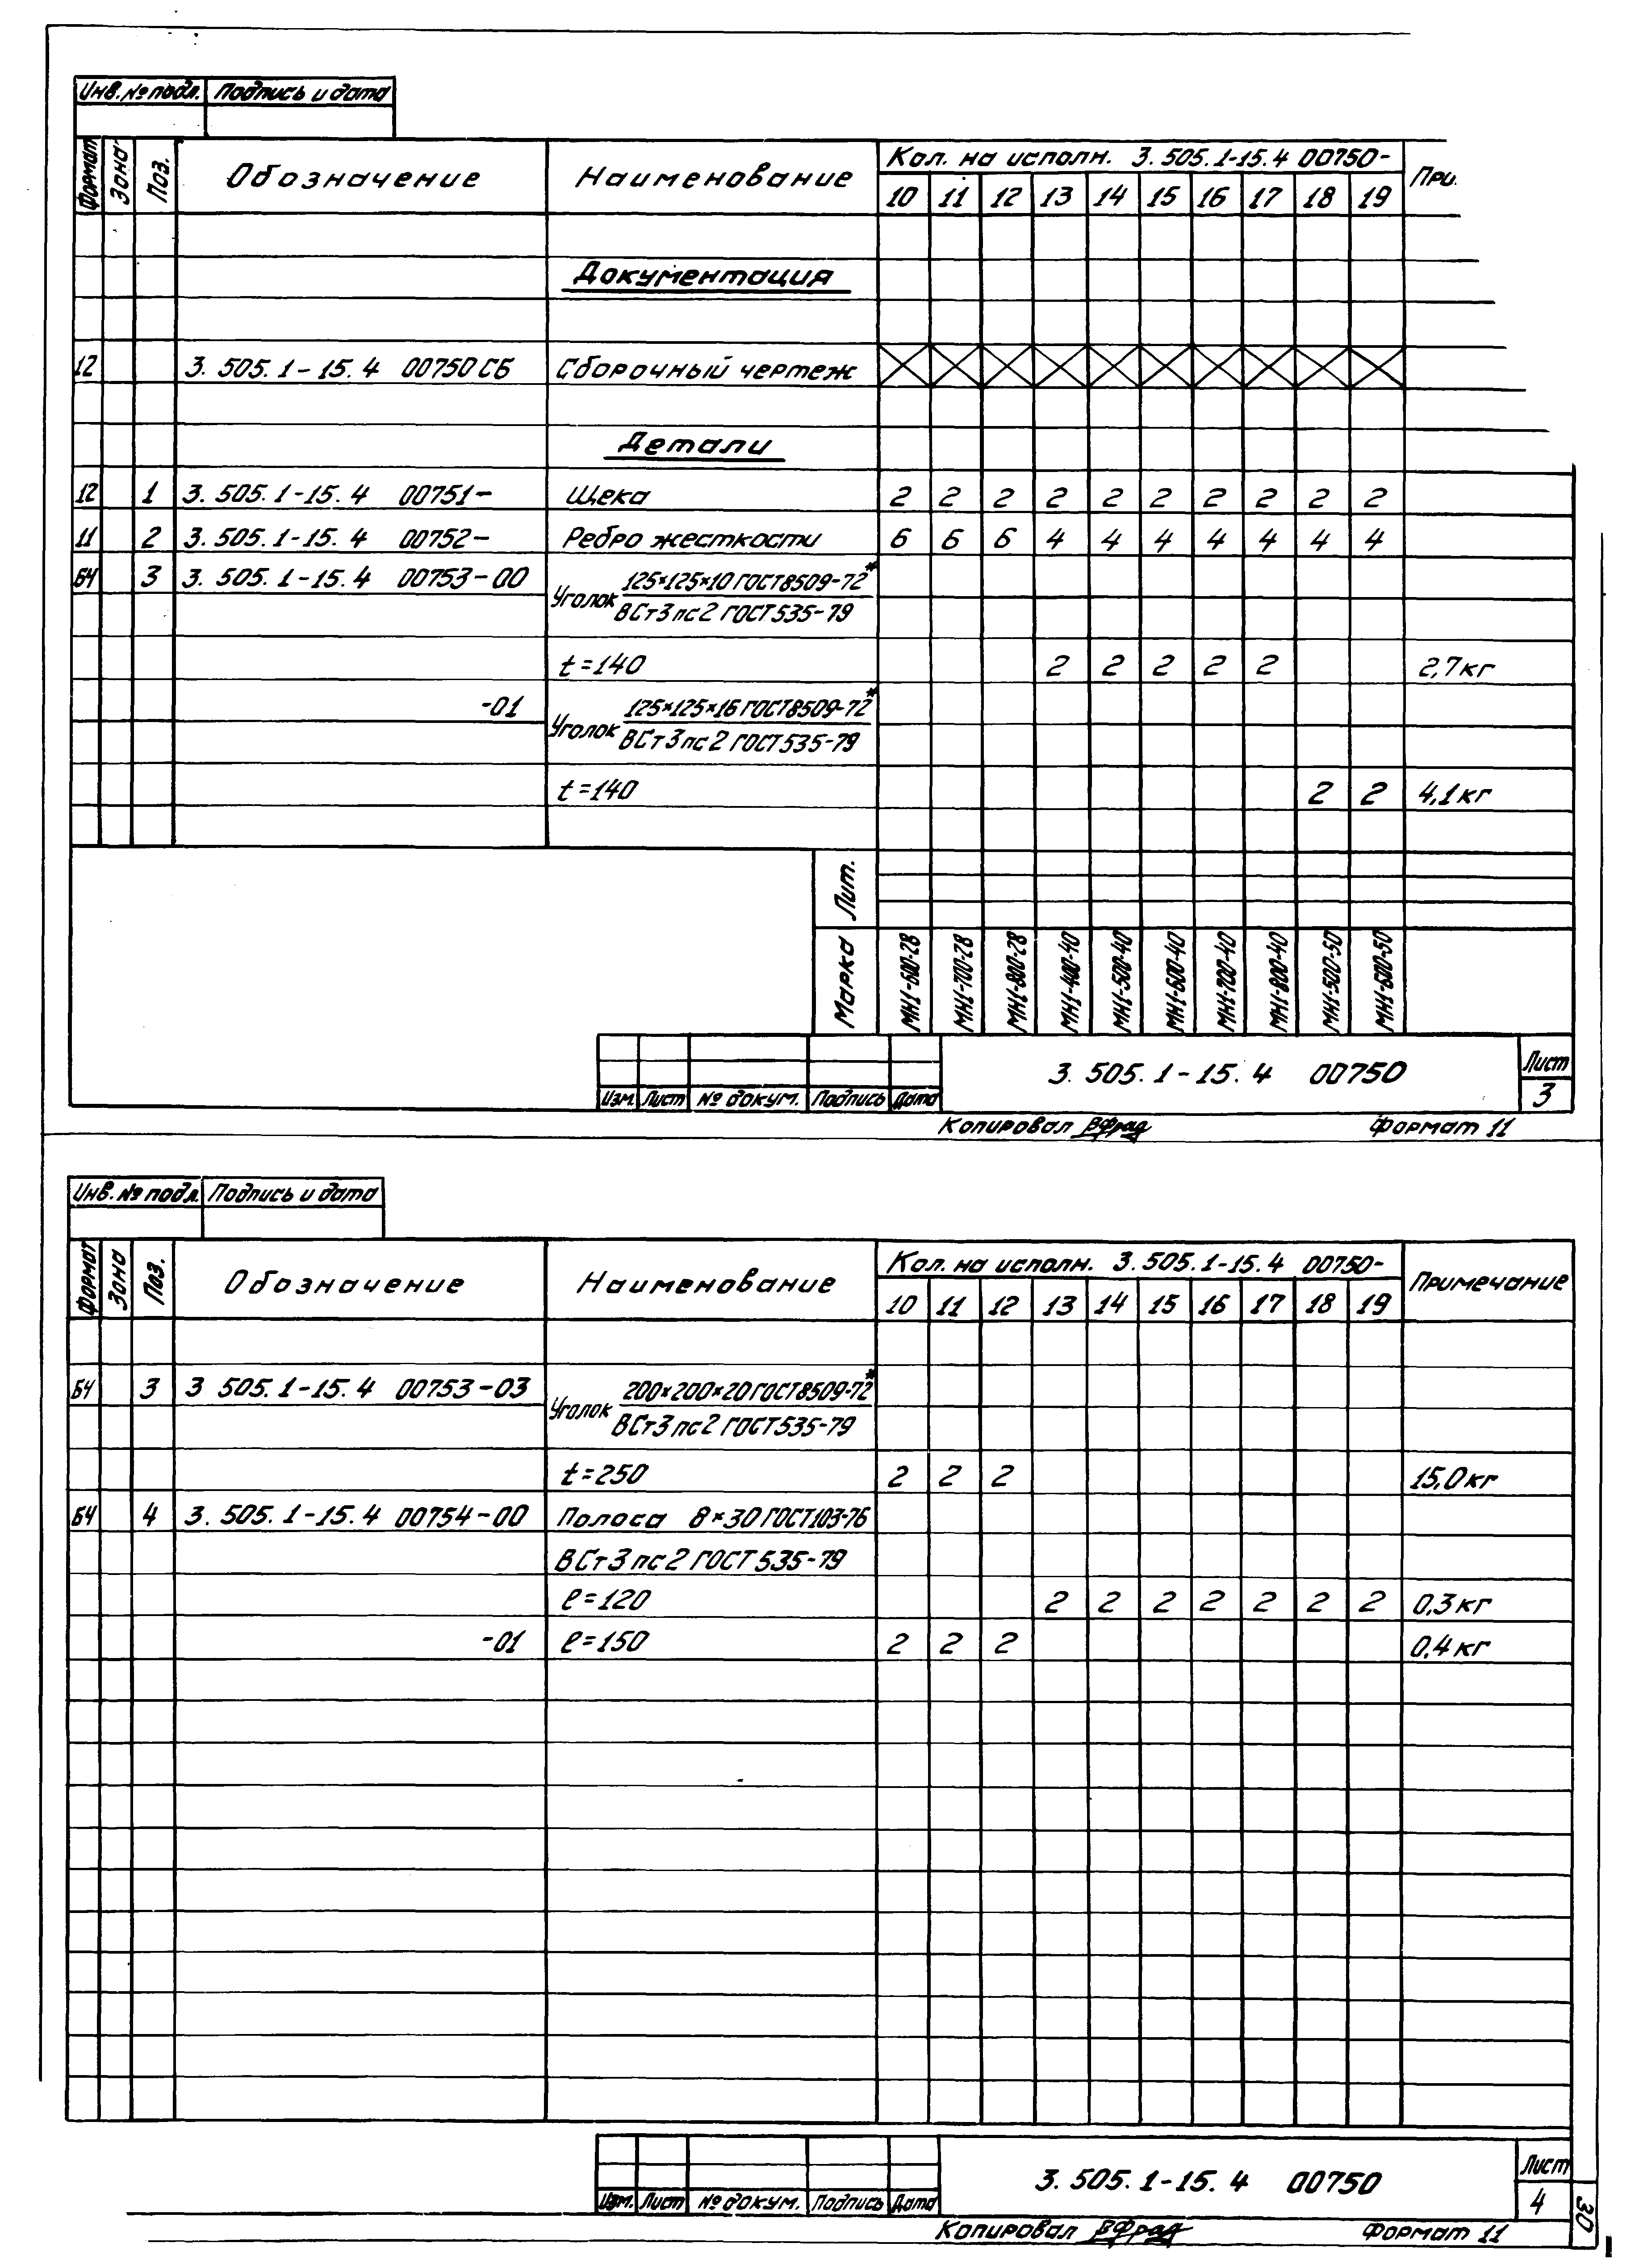 Инв. № подл. Подпись и дата
Формат Зона Поз. Обозначение Наименование Кол. на исполн. 3.505.1-15.4 00750- При.
10 11 12 13 14 15 16 17 18 19
Документация
12 3.505.1-15.4 00750СБ Сборочный чертеж
Детали
12 1 3.505.1-15.4 00751- Щека 2 2 2 2 2 2 2 2 2 2
11 2 3.505.1-15.4 00752- Ребро жесткости 6 6 6 4 4 4 4 4 4 4
БЧ 3 3.505.1-15.4 00753-00 Уголок 125×125×10 ГОСТ 8509-72*
ВСт3пс2 ГОСТ 535-79
t=140 2 2 2 2 2 2,7кг
-01 Уголок 125×125×16 ГОСТ 8509-72*
ВСт3пс2 ГОСТ 535-79
t=140 2 2 4,1кг
Лит.
Марка МН1-600-28 МН1-700-28 МН1-800-28 МН1-400-40 МН1-500-40 МН1-600-40 МН1-700-40 МН1-800-40 МН1-500-50 МН1-600-50
3.505.1-15.4 00750 Лист
Изм. Лист № докум. Подпись Дата 3
Копировал Формат 11
Инв. № подл. Подпись и дата
Формат Зона Поз. Обозначение Наименование Кол. на исполн. 3.505.1-15.4 00750- Примечание
10 11 12 13 14 15 16 17 18 19
БЧ 3 3 505.1-15.4 00753-03 Уголок 200×200×20 ГОСТ 8509-72*
ВСт3пс2 ГОСТ 535-79
t=250 2 2 2 15,0кг
БЧ 4 3.505.1-15.4 00754-00 Полоса 8×30 ГОСТ 103-76
ВСт3пс2 ГОСТ 535-79
ℓ=120 2 2 2 2 2 2 2 0,3кг
-01 ℓ=150 2 2 2 0,4кг
3.505.1-15.4 00750 Лист
Изм. Лист № докум. Подпись Дата 4
30
Копировал Формат 11